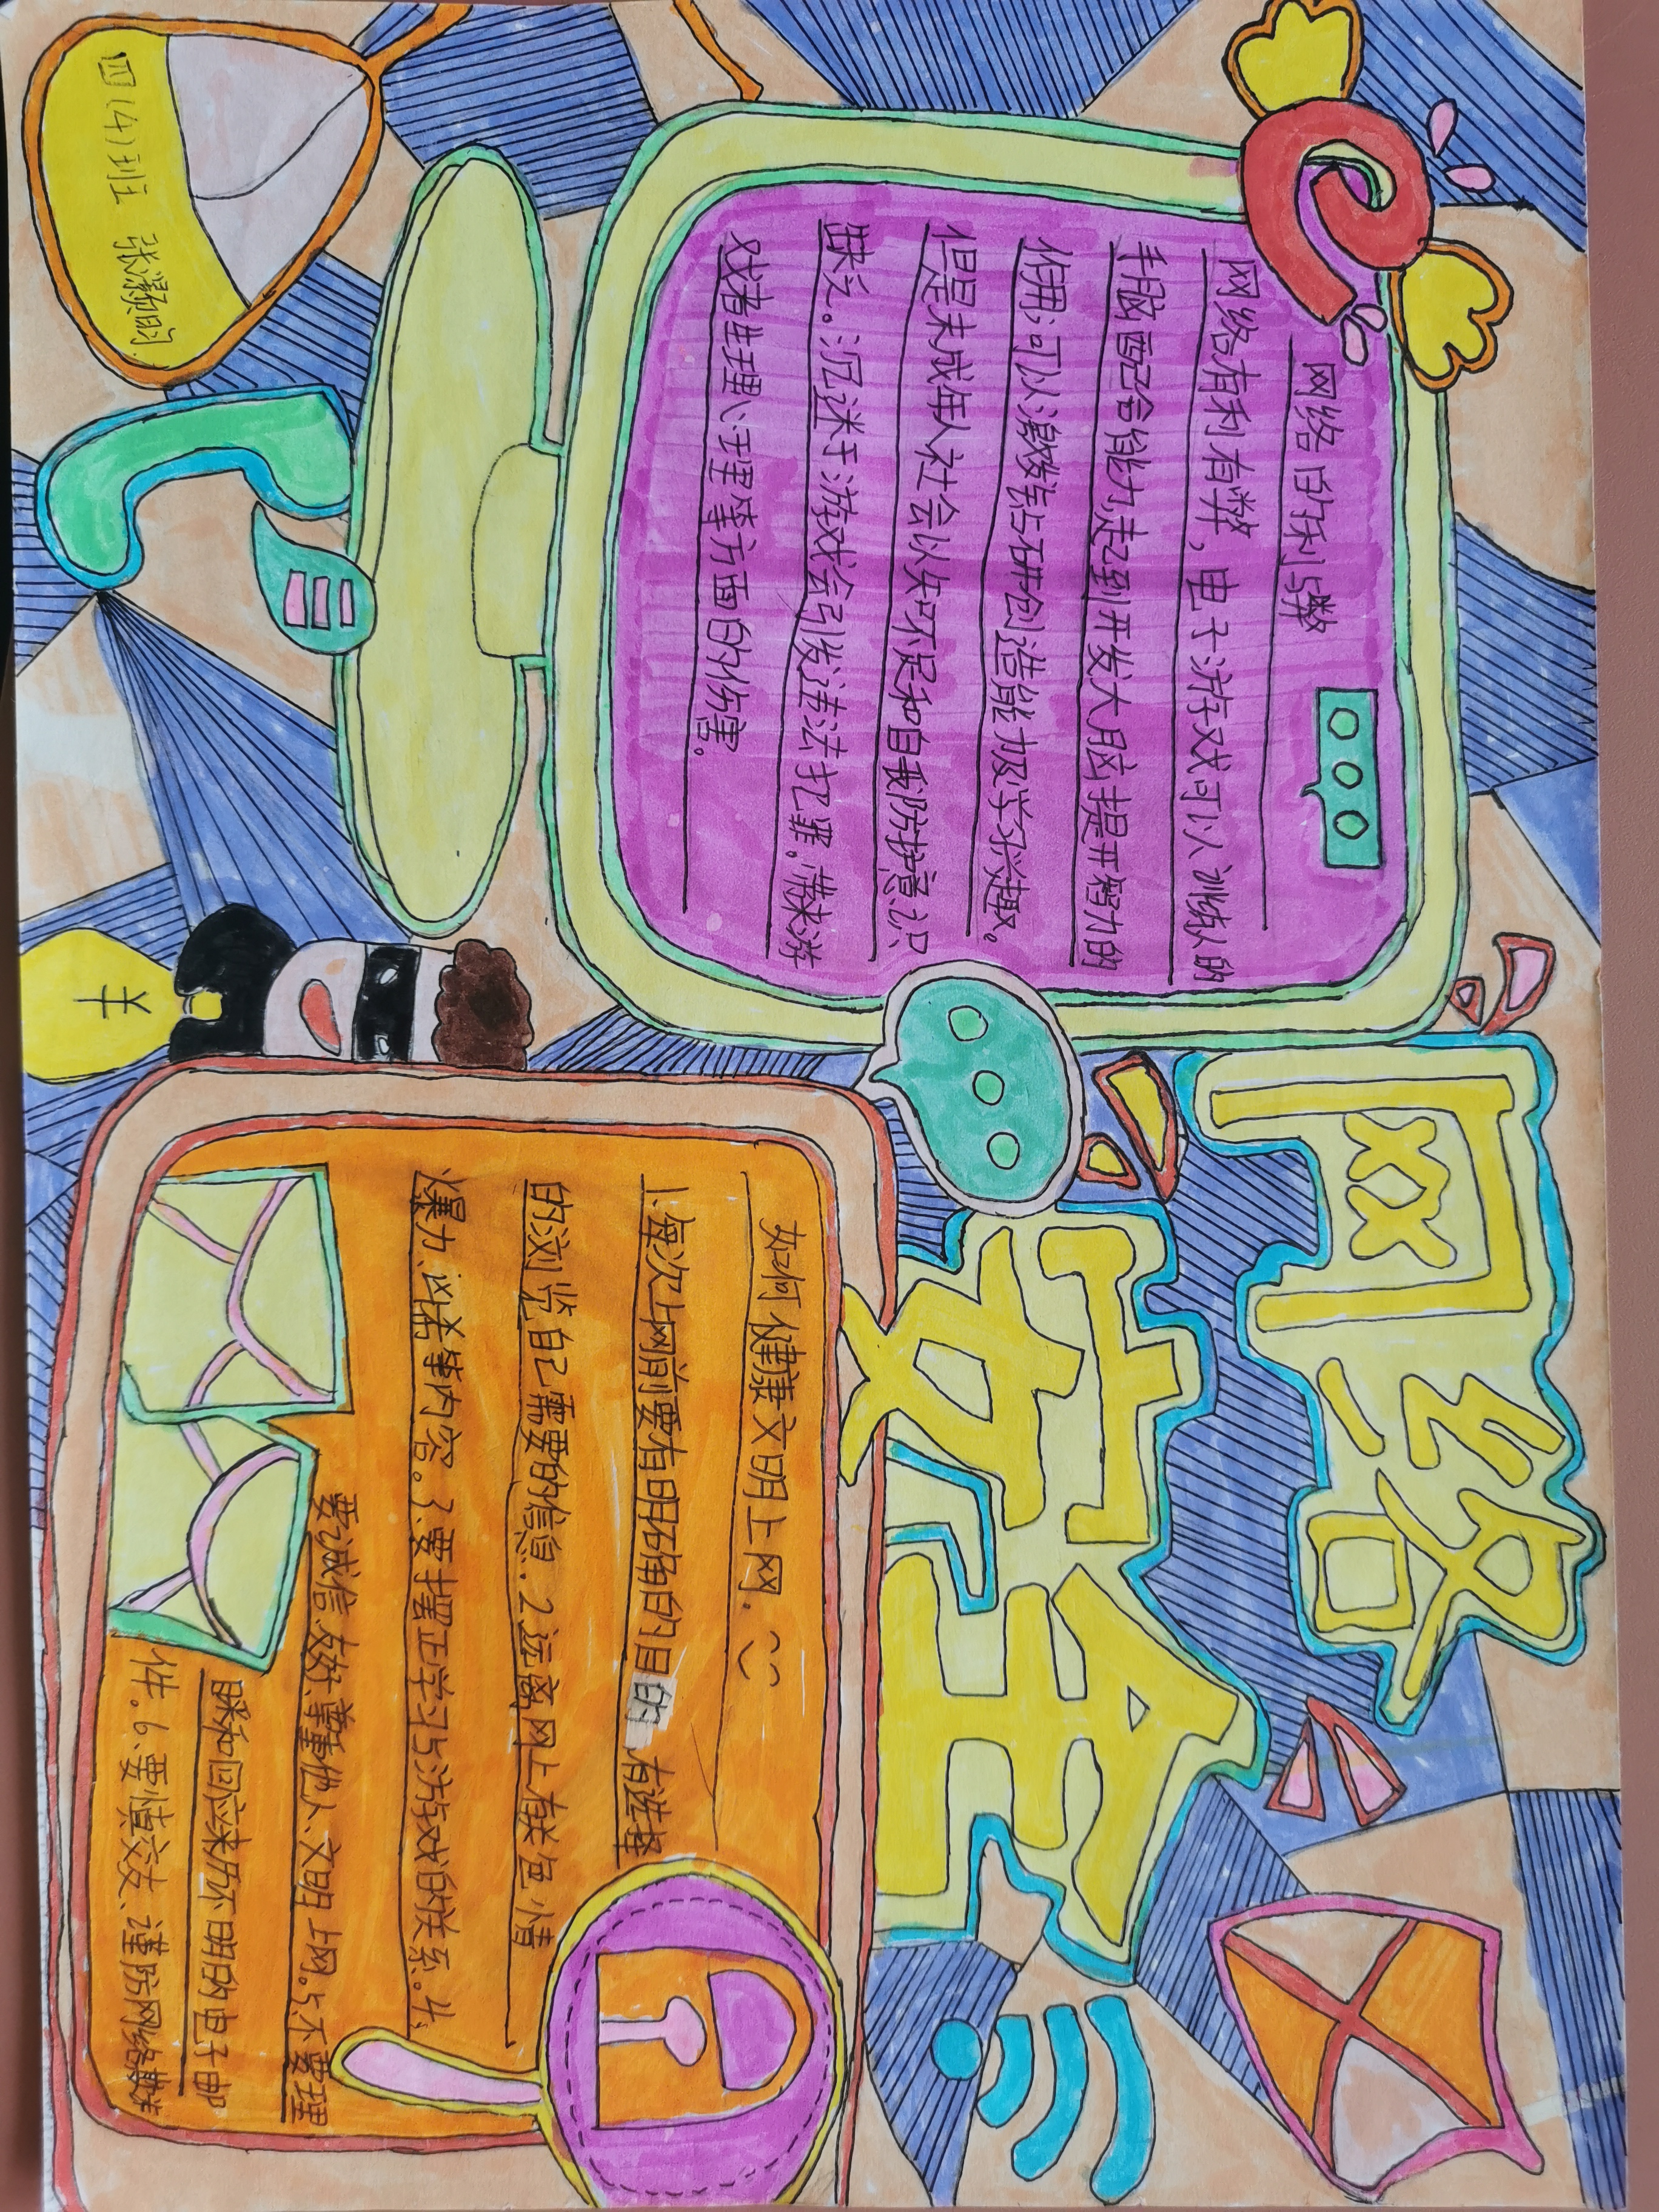 网络安全
网络的利与弊
网络有利有弊，电子游戏可以训练人的
手脑配合能力,起到开发大脑提开智力的
作用;可以激发钻研创造能力极学习兴趣。
但是未成年人社会认知不足和自我防护意识
缺乏。沉迷于游戏会引发违法犯罪。带来游
戏者生理心理等方面的伤害。
如何健康文明上网.
1.每次上网前要有明确的目的 有选择
的浏览自己需要的信息.2.远离网上有关色情
爆力、凶杀等内容。3.要摆正学习与游戏的关系。4.
要诚信友好、尊重他人、文明上网。5.不要理
睬和回应来历不明的电子邮
件。6.要慎交友、谨防网络欺诈
四(4)班 张